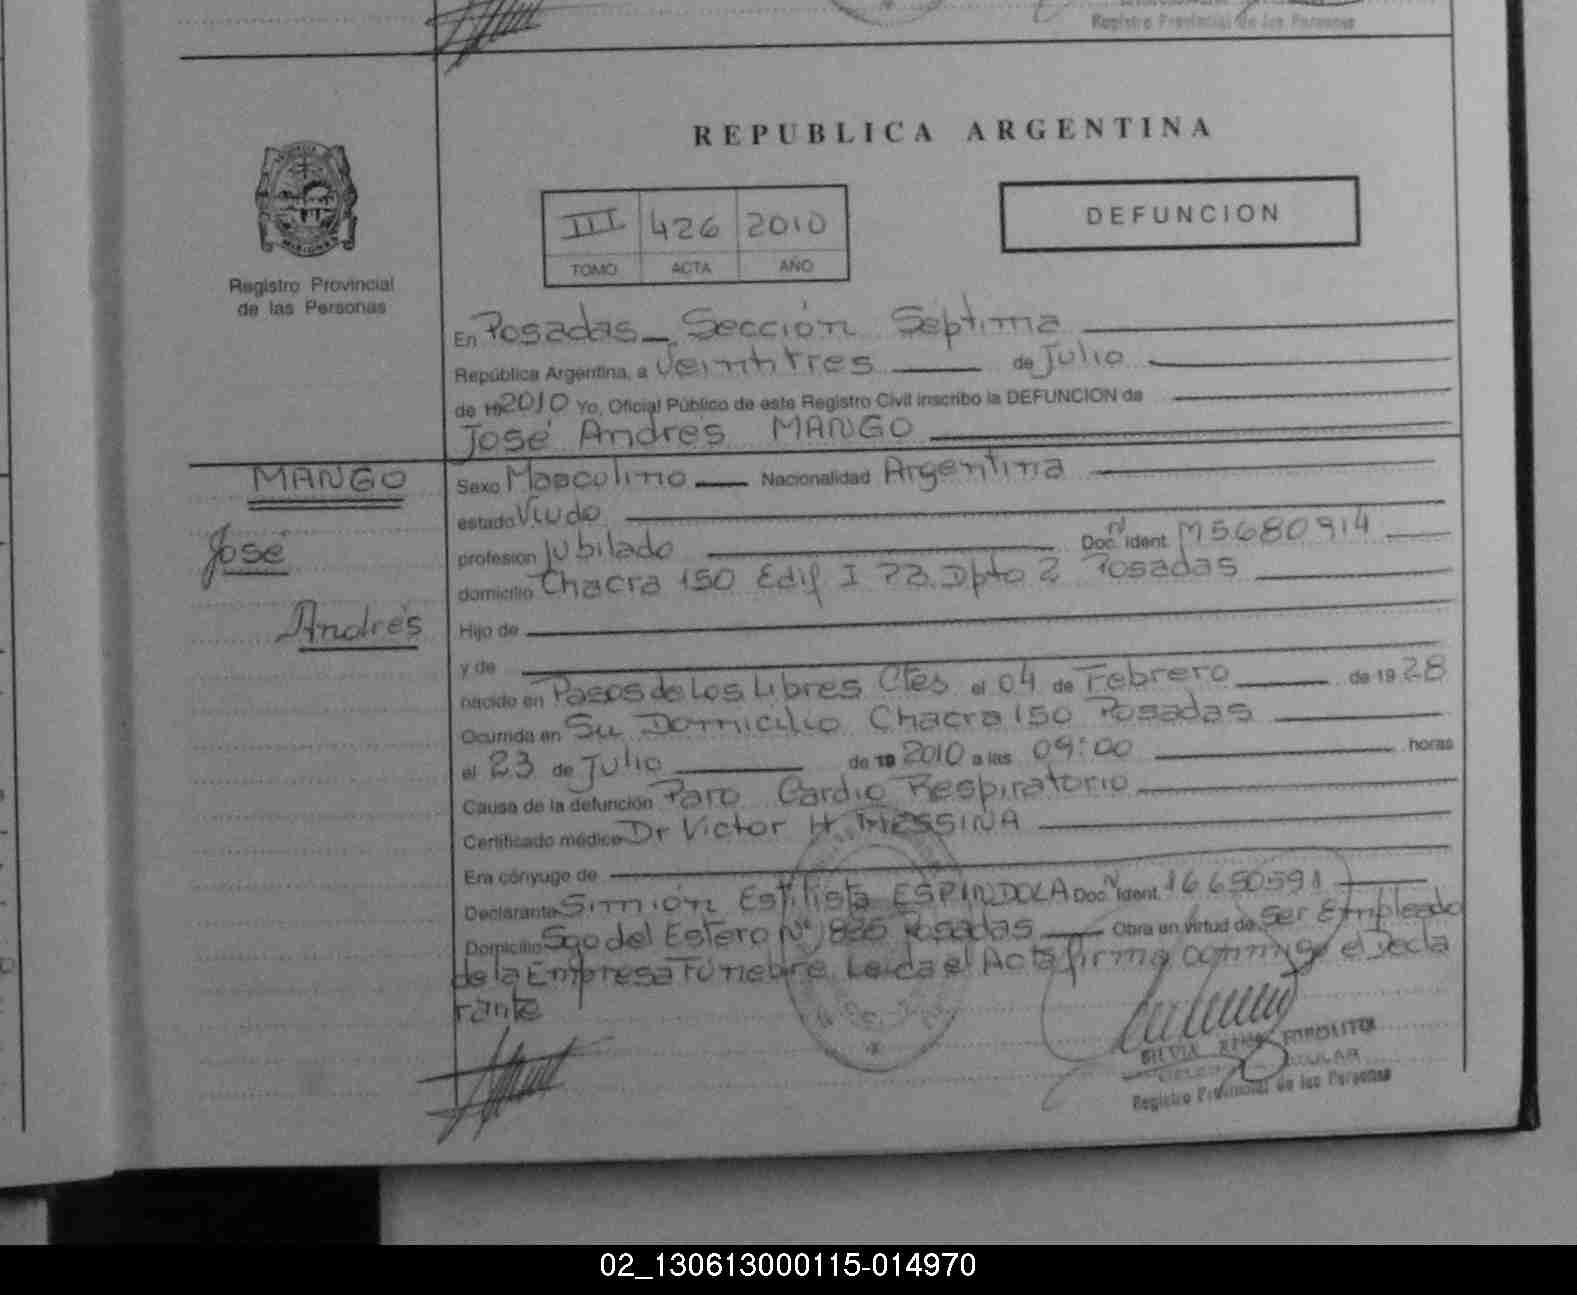 Registro Provincial de las Personas
REPUBLICA ARGENTINA
DEFUNCION
III 426 2010
TOMO ACTA AÑO
Registro Provincial
de las Personas
En Posadas Sección Septima
República Argentina, a Veintitres de Julio
de 19 2010 Yo, Oficial Público de este Registro Civil inscribo la DEFUNCION de
José Andrés MANGO
MANGO
José
Andrés
Sexo Masculino Nacionalidad Argentina
estado Viudo
profesión Jubilado Doc. N ident. M5680914
domicilio Chacra 150 Edif I Dpto 2 Posadas
Hijo de
y de
nacido en Pasos de Los Libres Ctes el 04 de Febrero de 19 28
Ocurrida en Su Domicilio Chacra 150 Posadas
el 23 de Julio de 19 2010 a las 09:00 horas
Causa de la defunción Paro Cardio Respiratorio
Certificado médico Dr Victor H. MESSINA
Era cónyuge de
Declarante Simión Estilista ESPINDOLA Doc. N ident. 16650591
Domicilio Sgo del Estero Nº 835 Posadas Obra en virtud de Ser Empleado
de la Empresa Funebre. Leida el Acta firma conmigo el Decla
rante
SILVIA
Registro Provincial de las Personas
02_130613000115-014970